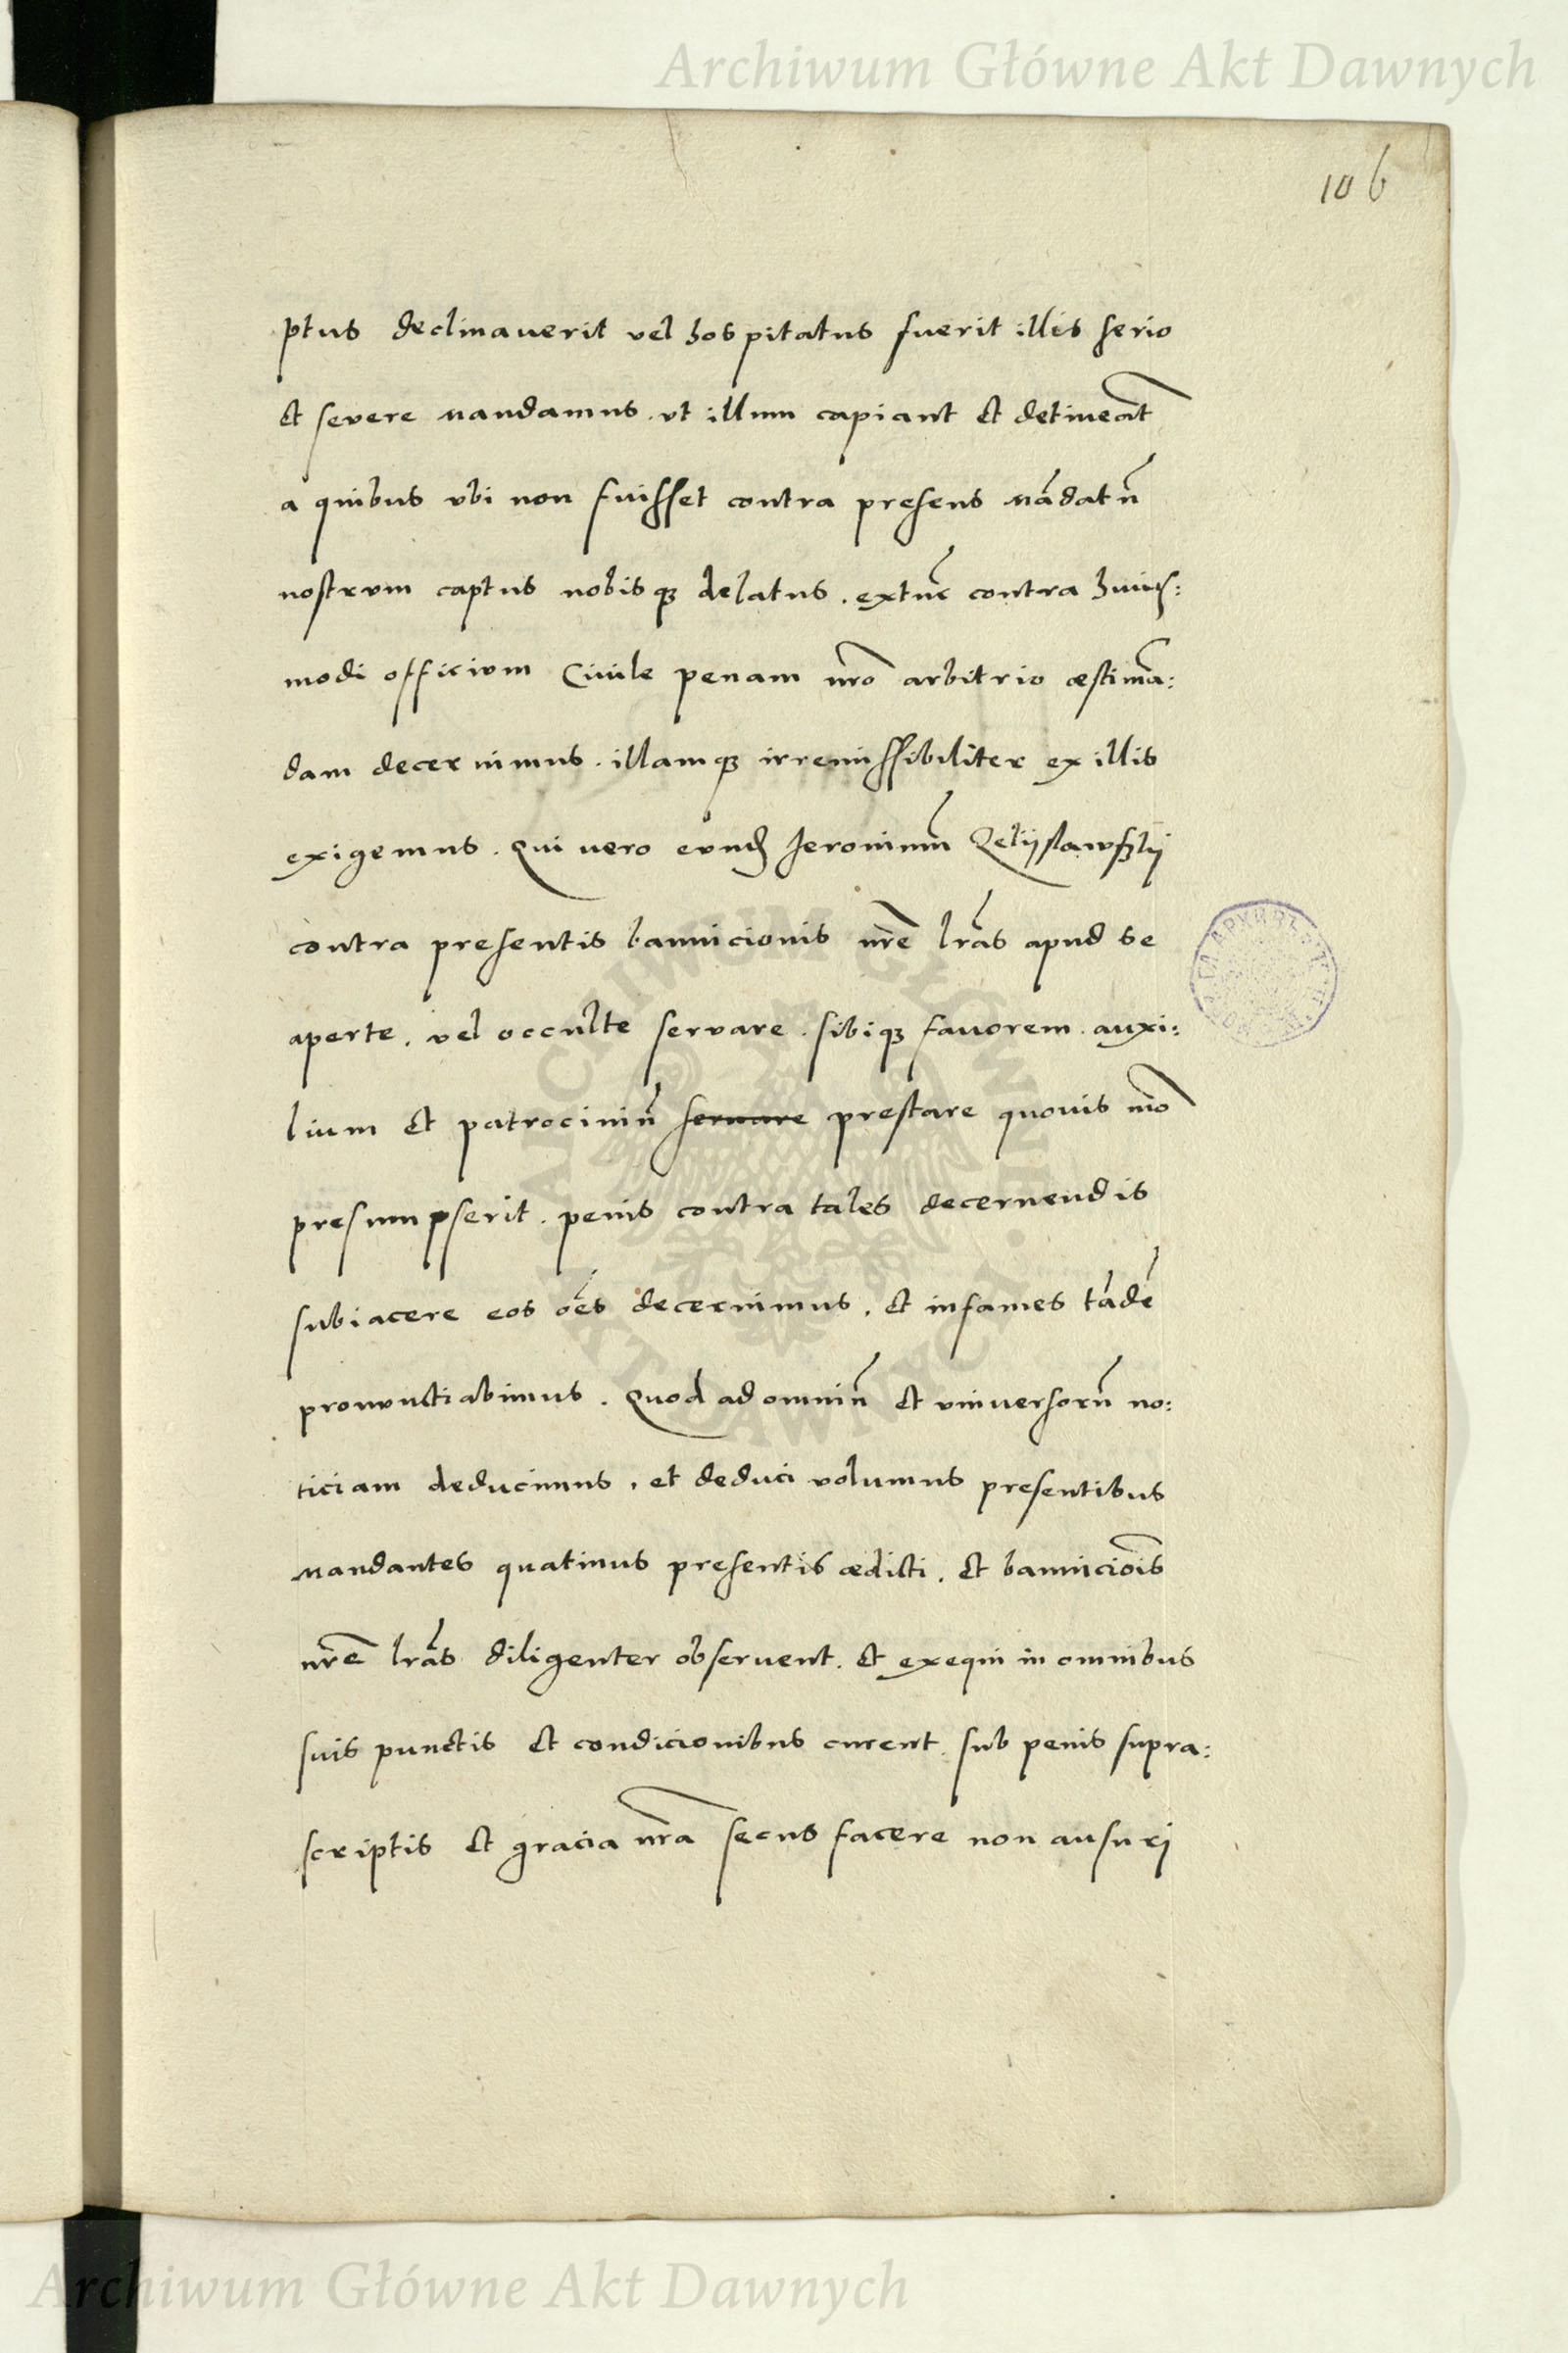 Archiwum Główne Akt Dawnych
106
ptus declinauerit vel hospitatus fuerit illis serio
et severe mandamus. vt illum capiant et detineāt
a quibus vbi non fuisset contra presens mādatū
nostrvm captus nobisqȝ delatus. extūc contra huius:
modi officivm Ciuile penam nr̄o arbitrio æstimā:
dam decernimus. illamqȝ irremissibiliter ex illis
exigemus. Qui vero evnd Jeronimū
contra presentis bannicionis nr̄e lr̄as apud se
aperte. vel occulte servare. sibiqȝ favorem. auxi:
lium et patrociniū servare prestare quouis mō
presumpserit. penis contra tales decernendis
subiacere eos ōes decernimus. et infames tādē
pronvnctiabimus. Quod ad omniū et vniuersorū no:
ticiam deducimus. et deduci volumus presentibus
mandantes quatinus presentis ædicti. et bannicōis
nr̄e lr̄as diligenter obseruent. et exequi in omnibus
suis punctis et condicionibus curent. sub penis supra:
scriptis et gracia nr̄a secus facere non ausuri
ARCHIWUM GŁÓWNE AKT DAWNYCH
Archiwum Główne Akt Dawnych